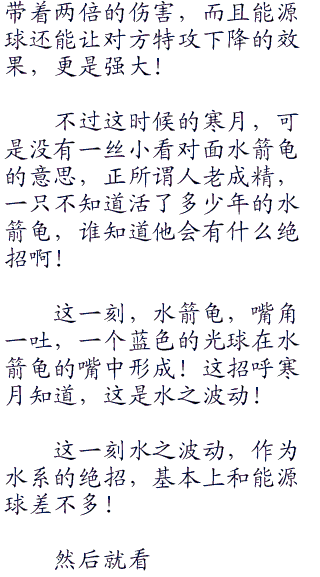 带着两倍的伤害，而且能源
球还能让对方特攻下降的效
果，更是强大！
不过这时候的寒月，可
是没有一丝小看对面水箭龟
的意思，正所谓人老成精，
一只不知道活了多少年的水
箭龟，谁知道他会有什么绝
招啊！
这一刻，水箭龟，嘴角
一吐，一个蓝色的光球在水
箭龟的嘴中形成！这招呼寒
月知道，这是水之波动！
这一刻水之波动，作为
水系的绝招，基本上和能源
球差不多！
然后就看